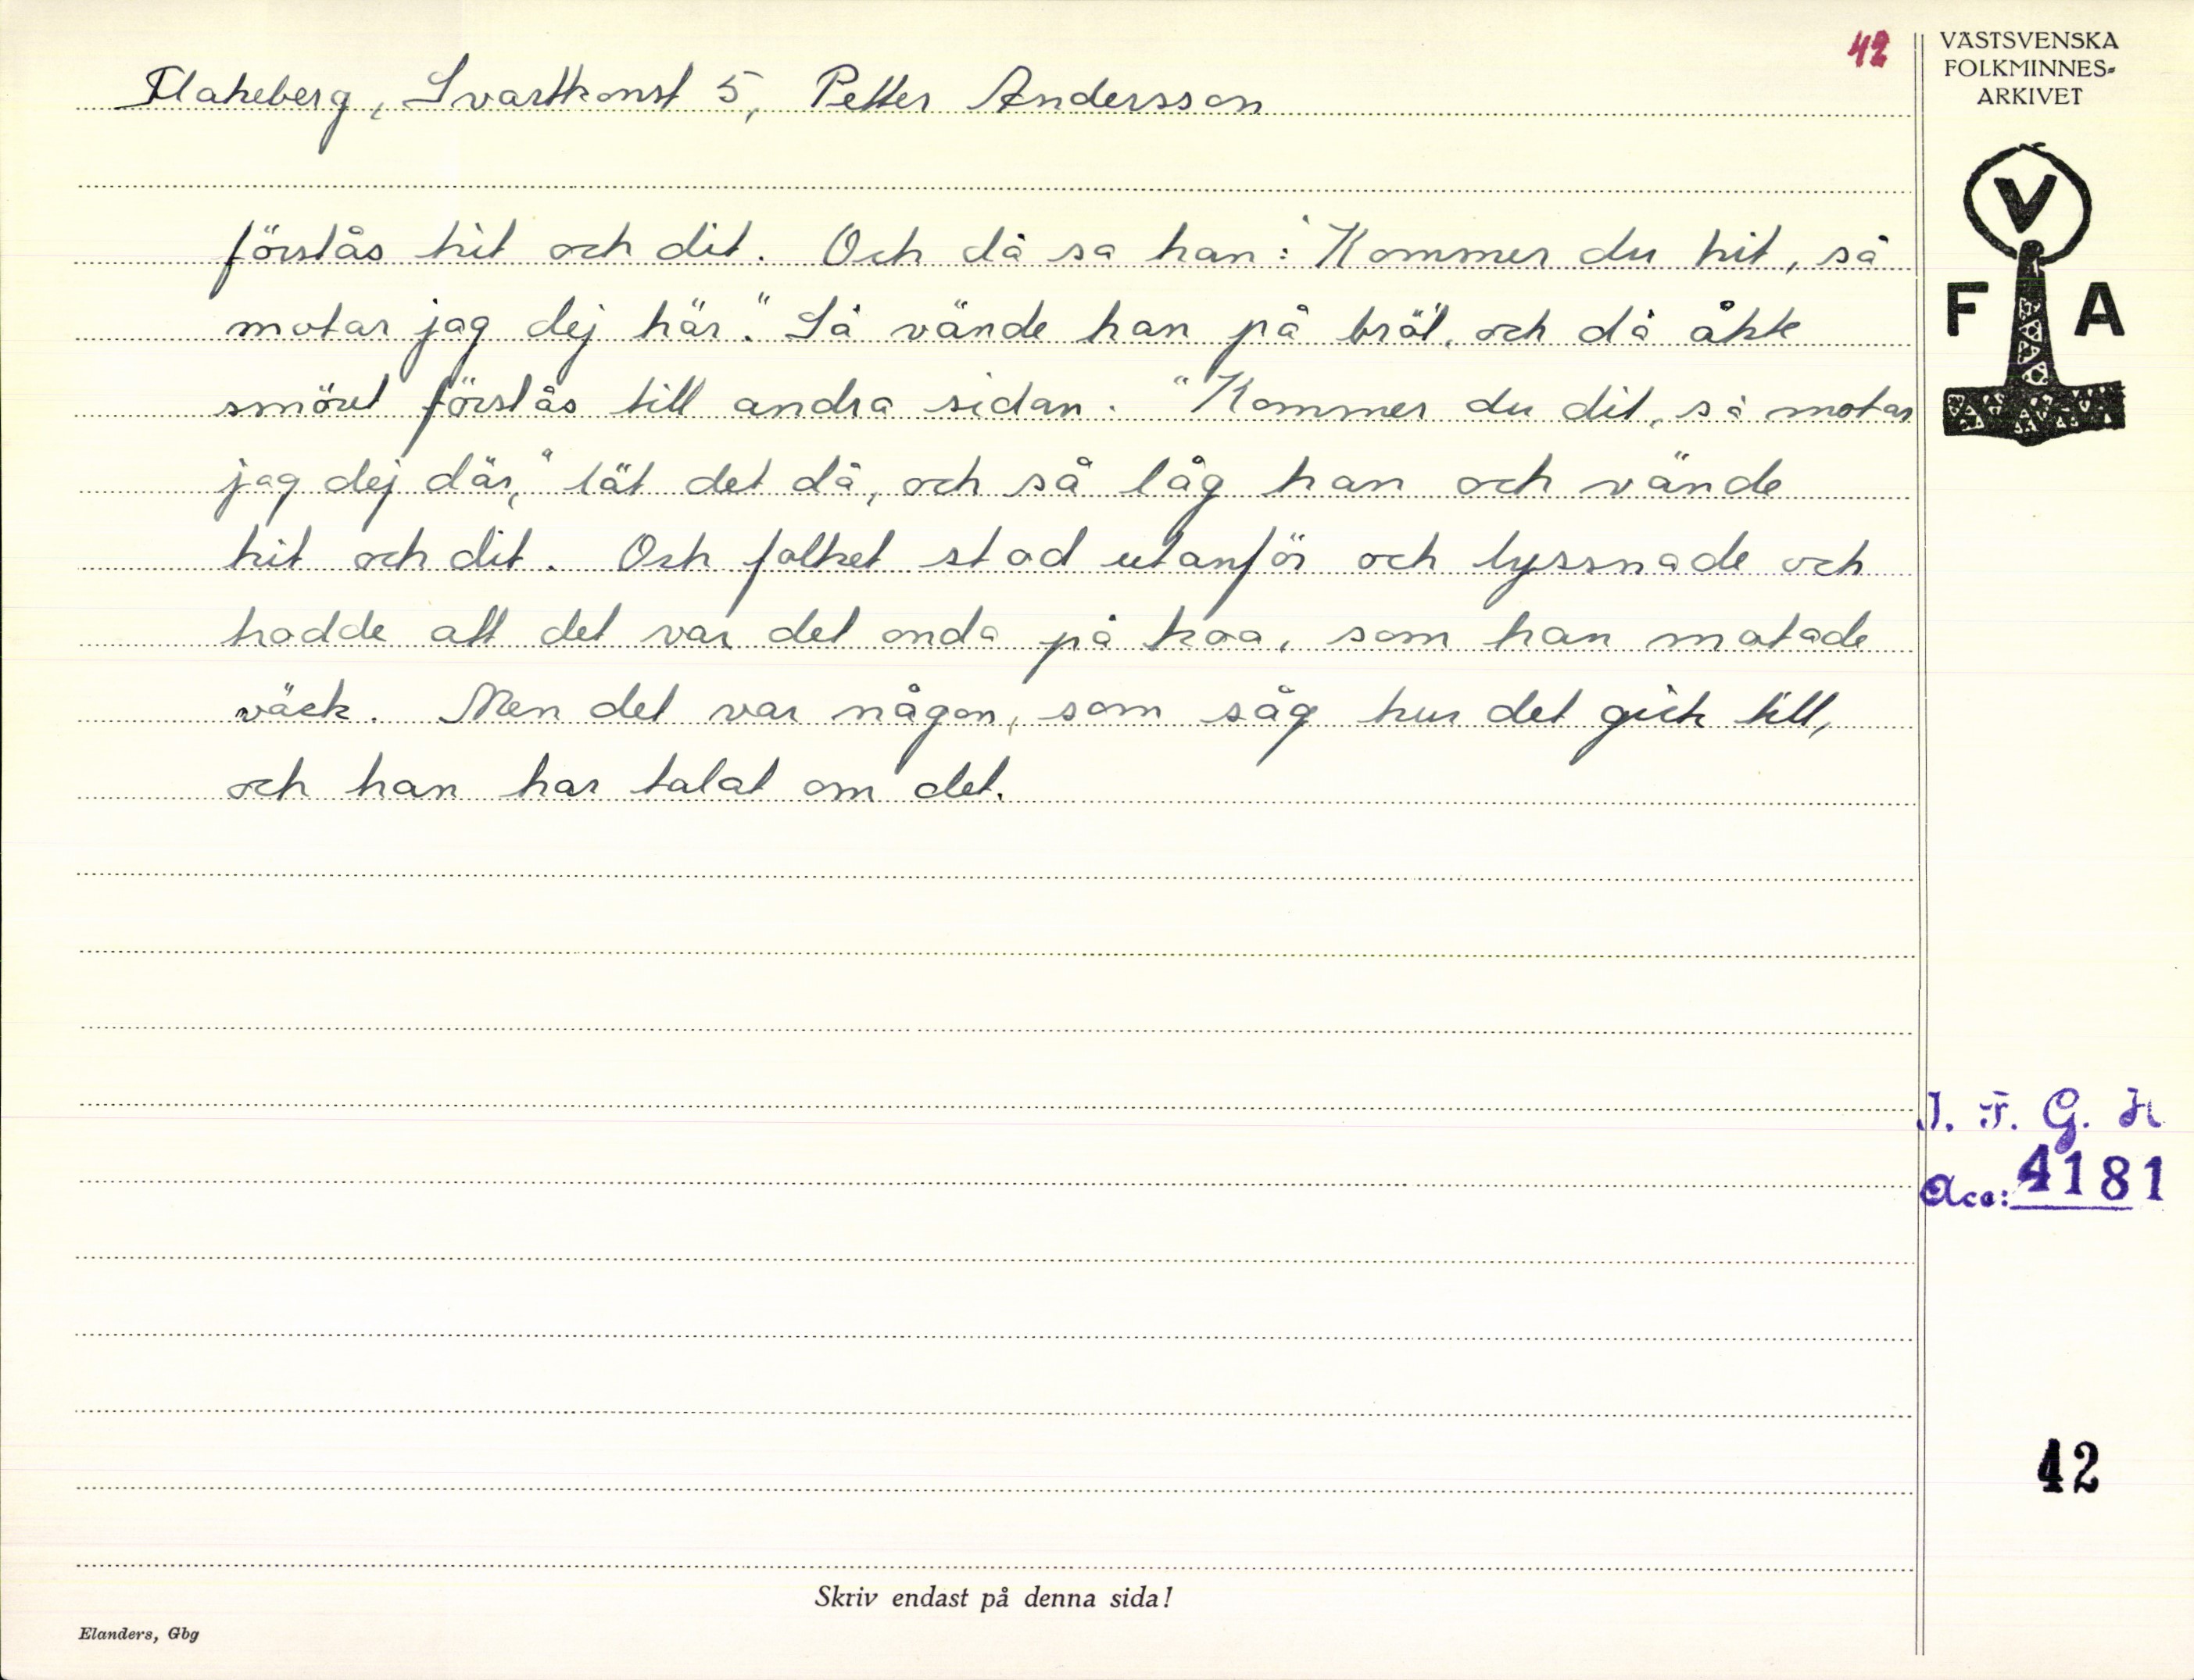 42
VÄSTSVENSKA
FOLKMINNES-
ARKIVET
Flakeberg, Svartkonst 5, Petter Andersson
V
F A
förstås hit och dit. Och då sa han: "Kommer du hit, så
motar jag dej här." Så vände han på brö't, och då åkte
smöret förstås till andra sidan. "Kommer du dit, så motar
jag dej där," lät det då, och så låg han och vände
hit och dit. Och folket stod utanför och lyssnade och
trodde att det var det onda på koa, som han motade
väck. Men det var någon, som såg hur det gick till,
och han har talat om det.
I. F. G. H
Acc: 4181
42
Skriv endast på denna sida!
Elanders, Gbg